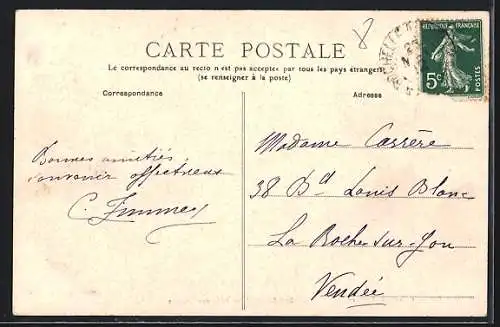 CARTE POSTALE
La correspondance au recto n'est pas acceptée par tous les pays étrangers
(se renseigner à la poste)
Correspondance
Adresse
REPUBLIQUE FRANÇAISE
5c
POSTES
Bonnes amitiés,
souvenir affectueux
C.
Madame Carrère
38 Bd Louis Blanc
La Roche-sur-Yon
Vendée